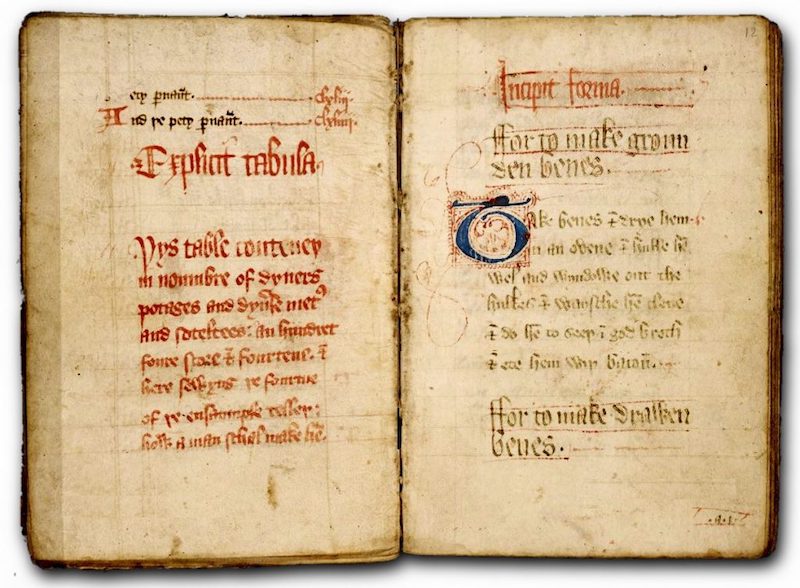 ety pᵉnaūt. clxliij.
And þe pety pᵉnaūt. clxliiij.
Explicit tabula.
Þys table conteney
in noumbre of dyners
potages and dyuᵉse metꝰ
and soteltees: an hundret
foure score & fourtene. &
here sewyng þe fourme
of þe ensample telleþ:
how a man schal make hē.
12
Incipit forma.
ffor to make groun
den benes.
Take benes & drye hem
in an ovene & hulle hē
wel and wyndowe out the
hulkes & waysche hē clene
& do hē to seeþ ī god broth
& ete hem wiþ bacoū.
ffor to make drawen
benes.